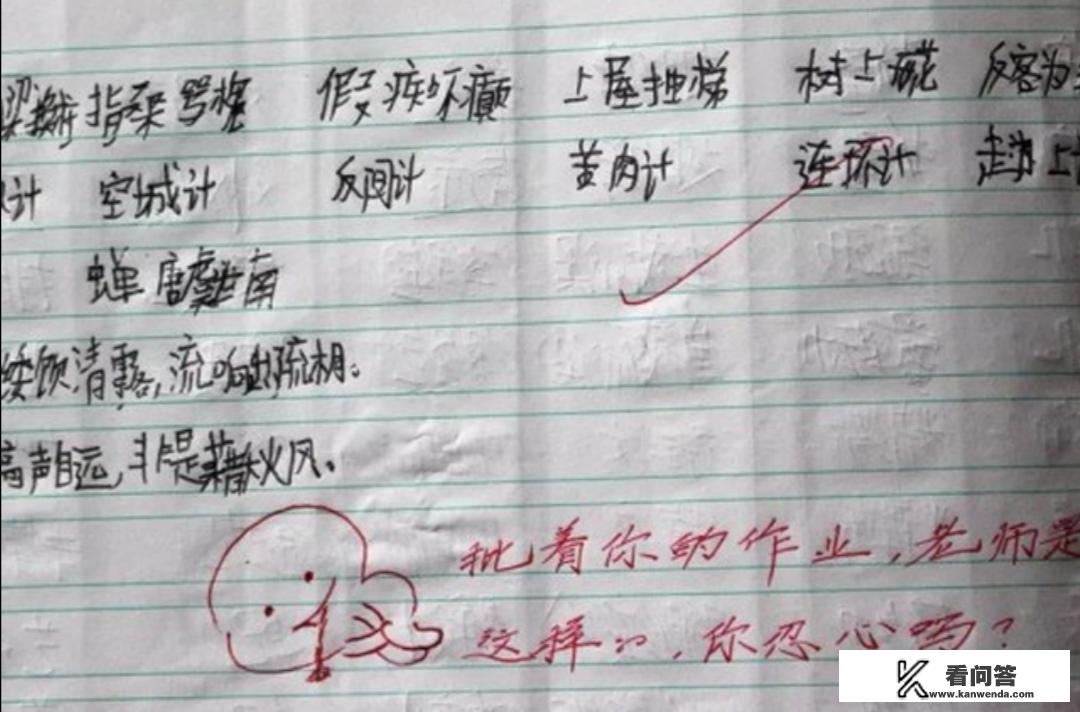 指桑骂槐 假 上屋抽梯 树上 反客为
计 空城计 反间计 苦肉计 连环计 走为上
蝉 唐虞世南
饮清露,流响出疏桐。
声自远,非是藉秋风。
批着你的作业,老师是
这样的,你忍心吗?
看问答
www.kanwenda.com